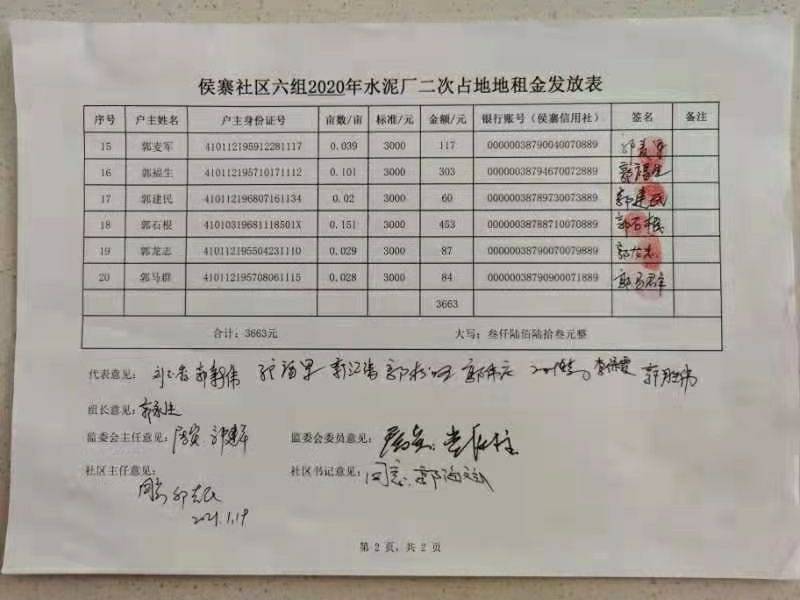 侯寨社区六组2020年水泥厂二次占地地租金发放表
序号 户主姓名 户主身份证号 亩数/亩 标准/元 金额/元 银行账号（侯寨信用社） 签名 备注
15 郭麦军 410112195912281117 0.039 3000 117 00000038790040070889 郭麦军
16 郭福生 410112195710171112 0.101 3000 303 00000038794670072889 郭福生
17 郭建民 410112196807161134 0.02 3000 60 00000038789730073889 郭建民
18 郭石根 41010319681118501X 0.151 3000 453 00000038788710070889 郭石根
19 郭龙志 410112195504231110 0.029 3000 87 00000038790070079889 郭龙志
20 郭马群 410112195708061115 0.028 3000 84 00000038790900071889 郭马群
3663
合计：3663元 大写：叁仟陆佰陆拾叁元整
代表意见：
组长意见：
监委会主任意见： 监委会委员意见：
社区主任意见： 社区书记意见：同意
同意
2021.1.19
第 2 页，共 2 页